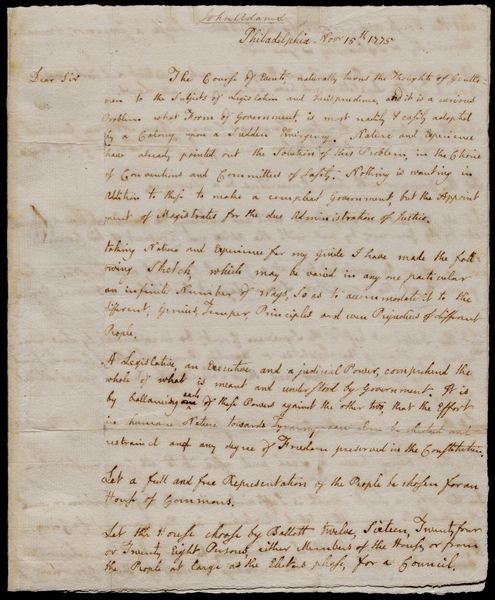 John Adams
Philadelphia Novr 15th 1775
Dear Sir
The Course of Events naturally turns the Thoughts of Gentle
men to the Subjects of Legislation and Jurisprudence, and it is a curious
Problem what Form of Government, is most readily & easily adopted
by a Colony, upon a Sudden Emergency. Nature and Experience
have already pointed out the Solution of this Problem, in the Choice
of Conventions and Committees of Safety. Nothing is wanting in
Addition to these to make a compleat Government, but the Appoint
ment of Magistrates for the due Administration of Justice.
taking Nature and Experience for my Guide I have made the foll
owing Sketch, which may be varied in any one particular
an infinite Number of Ways, So as to accommodate it to the
different, Genius, Temper, Principles and even Prejudices of different
People.
A Legislative, an Executive and a judicial Power, comprehend the
whole of what is meant and understood by Government. It is
by ballancing each of these Powers against the other two, that the Effort
in humane Nature towards Tyranny can alone be checked and
restrained and any degree of Freedom preserved in the Constitution.
Let a full and free Representation of the People be chosen for an
House of Commons.
Let the House choose by Ballott twelve, Sixteen, Twenty four
or Twenty Eight Persons, either Members of the House, or from
the People at large as the Electors please, for a Council.